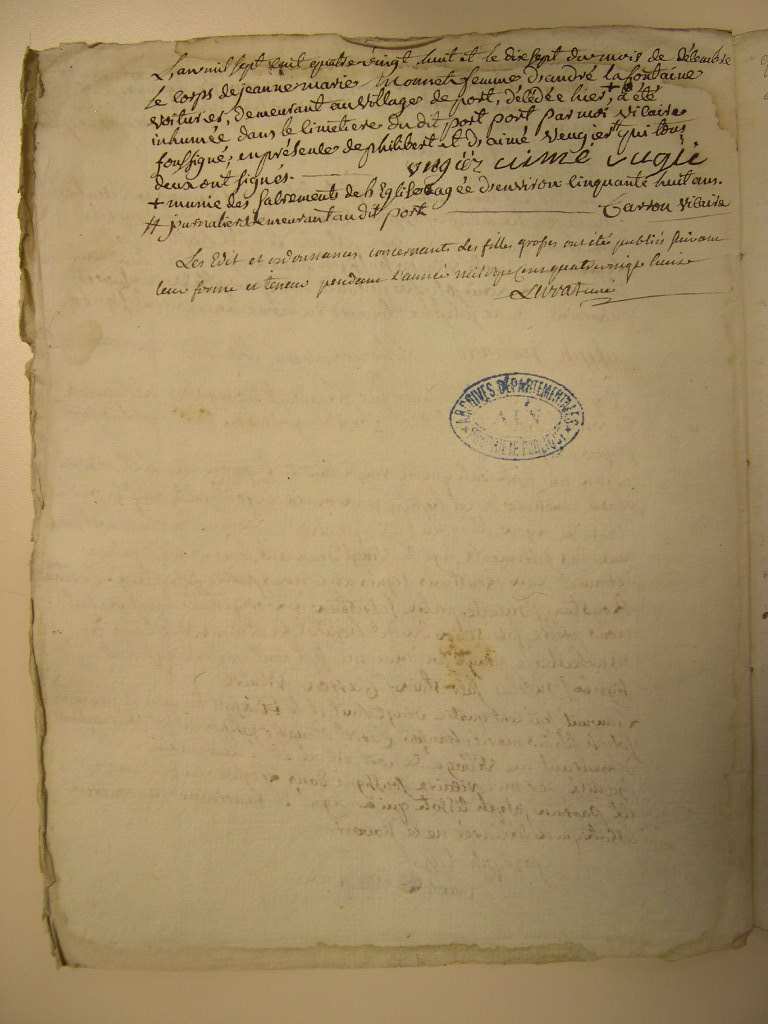 L'an mil sept cent quatre vingt huit et le dix sept du mois de décembre
le corps de jeanne marie Monnet femme d'andré lafontaine
voiturier, demeurant au village de port, décédée hier, + a été
inhumée dans le cimetiere du dit port port par moi vicaire
soussigné, en présence de philibert et d'aimé vengier # qui tous
deux ont signés. vugiez aimé vugié
+ munie des sacrements de l'Eglise agée d'environ cinquante huit ans.
# journaliers demeurant au dit port Carron vicaire
Les Edit et ordonnances concernant les filles grosses ont étés publiés suivant
leur forme et teneur pendant l'année mil sept cens quatre vingt huit
curé
ARCHIVES DÉPARTEMENTALES
AIN
PROPRIÉTÉ PUBLIQUE